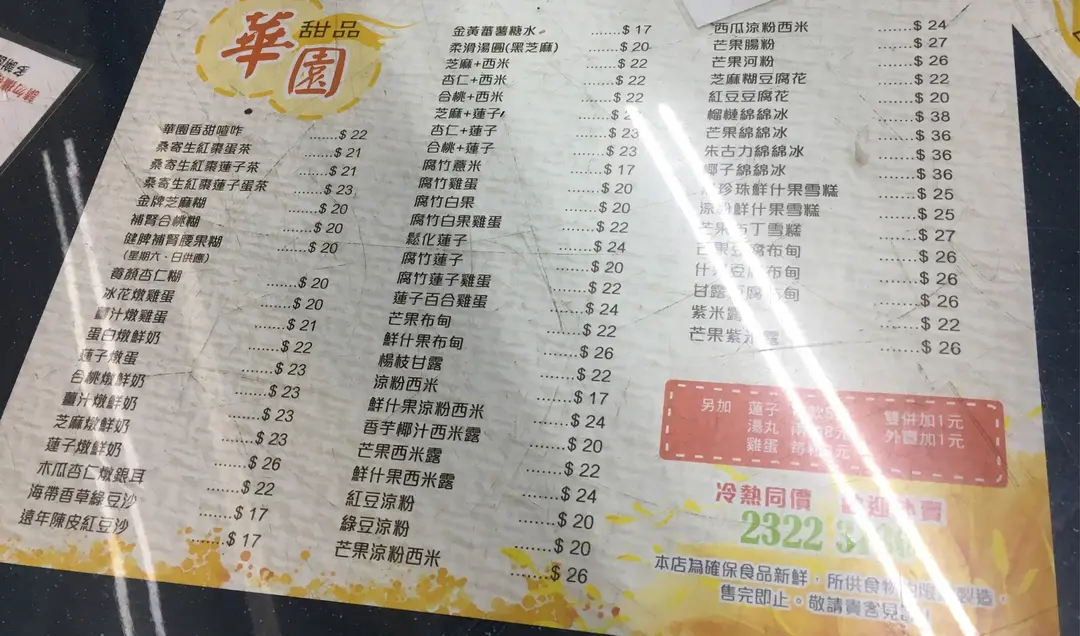 華園 甜品
華園香甜喳咋 ......$ 22
桑寄生紅棗蛋茶 ......$ 21
桑寄生紅棗蓮子茶 ......$ 21
桑寄生紅棗蓮子蛋茶 ......$ 23
金牌芝麻糊 ......$ 20
補腎合桃糊 ......$ 20
健脾補腎腰果糊 ......$ 20
(星期六、日供應)
養顏杏仁糊 ......$ 20
冰花燉雞蛋 ......$ 20
薑汁燉雞蛋 ......$ 21
蛋白燉鮮奶 ......$ 22
蓮子燉蛋 ......$ 23
合桃燉鮮奶 ......$ 23
薑汁燉鮮奶 ......$ 23
芝麻燉鮮奶 ......$ 23
蓮子燉鮮奶 ......$ 26
木瓜杏仁燉銀耳 ......$ 22
海帶香草綠豆沙 ......$ 17
遠年陳皮紅豆沙 ......$ 17
金黃蕃薯糖水 ......$ 17
柔滑湯圓(黑芝麻) ......$ 20
芝麻+西米 ......$ 22
杏仁+西米 ......$ 22
合桃+西米 ......$ 22
芝麻+蓮子 ......$
杏仁+蓮子 ......$ 23
合桃+蓮子 ......$ 23
腐竹薏米 ......$ 17
腐竹雞蛋 ......$ 20
腐竹白果 ......$ 20
腐竹白果雞蛋 ......$ 22
鬆化蓮子 ......$ 24
腐竹蓮子 ......$ 20
腐竹蓮子雞蛋 ......$ 22
蓮子百合雞蛋 ......$ 24
芒果布甸 ......$ 22
鮮什果布甸 ......$ 26
楊枝甘露 ......$ 22
涼粉西米 ......$ 17
鮮什果涼粉西米 ......$ 24
香芋椰汁西米露 ......$ 20
芒果西米露 ......$ 22
鮮什果西米露 ......$ 24
紅豆涼粉 ......$ 20
綠豆涼粉 ......$ 20
芒果涼粉西米 ......$ 26
西瓜涼粉西米 ......$ 24
芒果腸粉 ......$ 27
芒果河粉 ......$ 26
芝麻糊豆腐花 ......$ 22
紅豆豆腐花 ......$ 20
榴槤綿綿冰 ......$ 38
芒果綿綿冰 ......$ 36
朱古力綿綿冰 ......$ 36
椰子綿綿冰 ......$ 36
珍珠鮮什果雪糕 ......$ 25
涼粉鮮什果雪糕 ......$ 25
芒果布丁雪糕 ......$ 27
芒果豆腐布甸 ......$ 26
什果豆腐布甸 ......$ 26
甘露豆腐布甸 ......$ 26
紫米露 ......$ 22
芒果紫米露 ......$ 26
另加 蓮子 雙併加1元
湯丸 8元 外賣加1元
雞蛋
冷熱同價 歡迎外賣
2322
本店為確保食品新鮮，所供食物均限量製造，
售完即止。敬請貴客見諒！